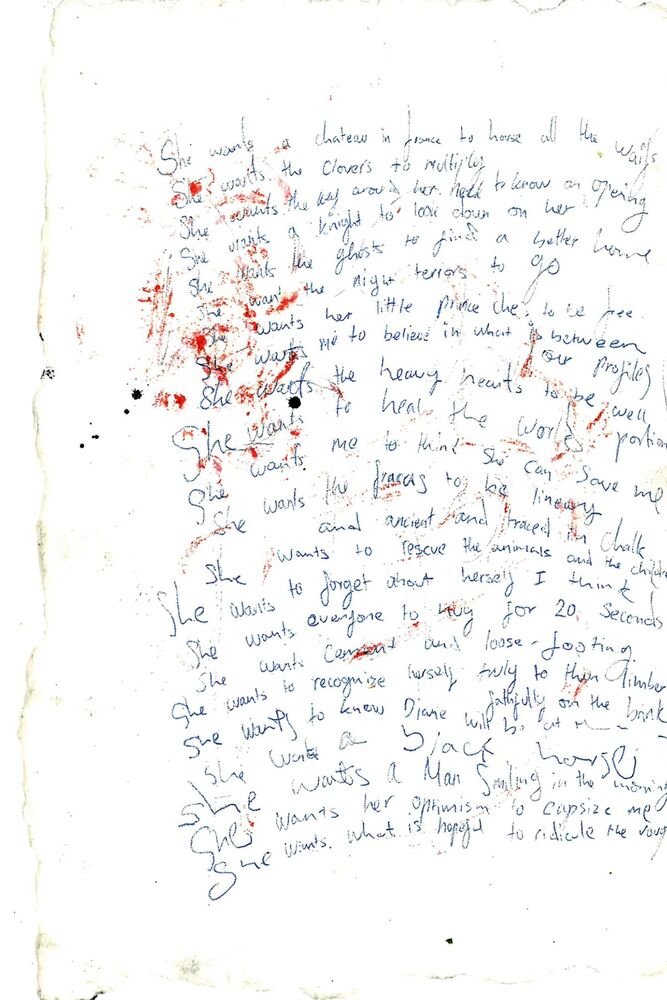 She wants a chateau in france to house all the waifs
She wants the clovers to multiply
She wants the key around her neck to know an opening
She wants a knight to look down on her
She wants the ghosts to find a better home
She want the night terrors to go
She wants her little prince che to be free
She wants me to believe in what is between
our profiles
She wants the heavy hearts to be well
She wants to heal the world portion
She wants me to think she can save me
She wants the fracas to be lineary
and ancient and traced in chalk
She wants to rescue the animals and the children
She wants to forget about herself I think
She wants everyone to hug for 20 seconds
She wants cement and loose-footing
She wants to recognize herself truly to then limber
faithfully on the brink
She wants to know Diane will be at
She wants a black horse
She wants a Man Smiling in the morning
She wants her optimism to capsize me
She wants what is hopeful to ridicule the